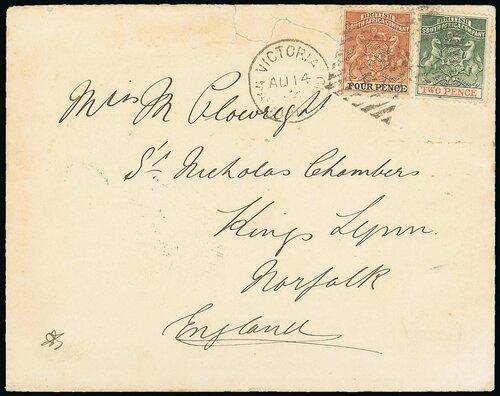 BRITISH
SOUTH AFRICA COMPANY
FOUR PENCE
BRITISH
SOUTH AFRICA COMPANY
TWO PENCE
VICTORIA
AU 14
Miss M Plowright
St Nicholas Chambers
Kings Lynn
Norfolk
England